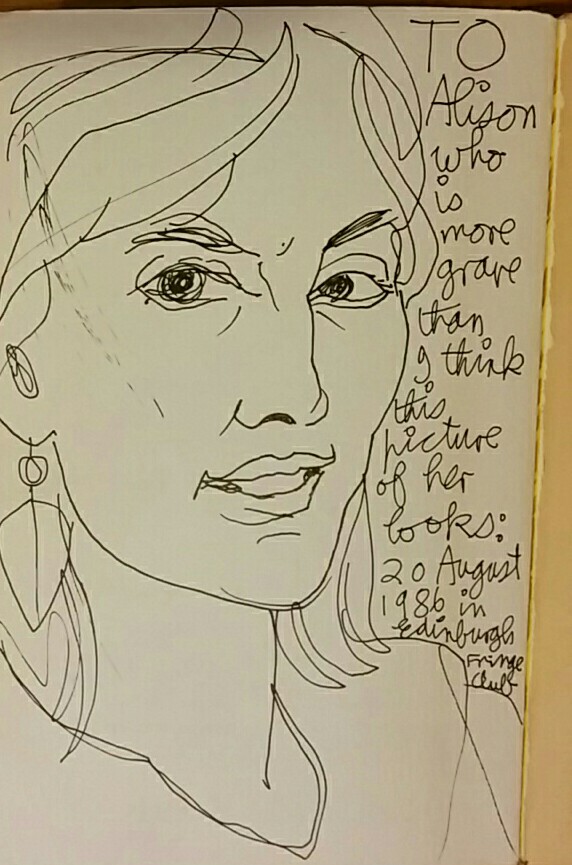 TO
Alison
who
is
more
grave
than
I think
this
picture
of her
looks:
20 August
1986 in
Edinburgh
Fringe
Club